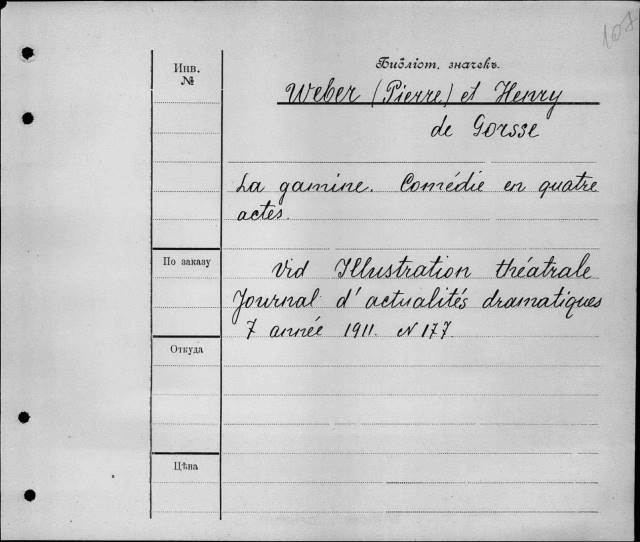 108
Инв.
№
Библіот. значекъ.
Weber (Pierre) et Henry
de Gorsse
La gamine. Comédie en quatre
actes.
По заказу
Vid Illustration théatrale
Journal d'actualités dramatiques
7 année 1911. N 177.
Откуда
Цѣна